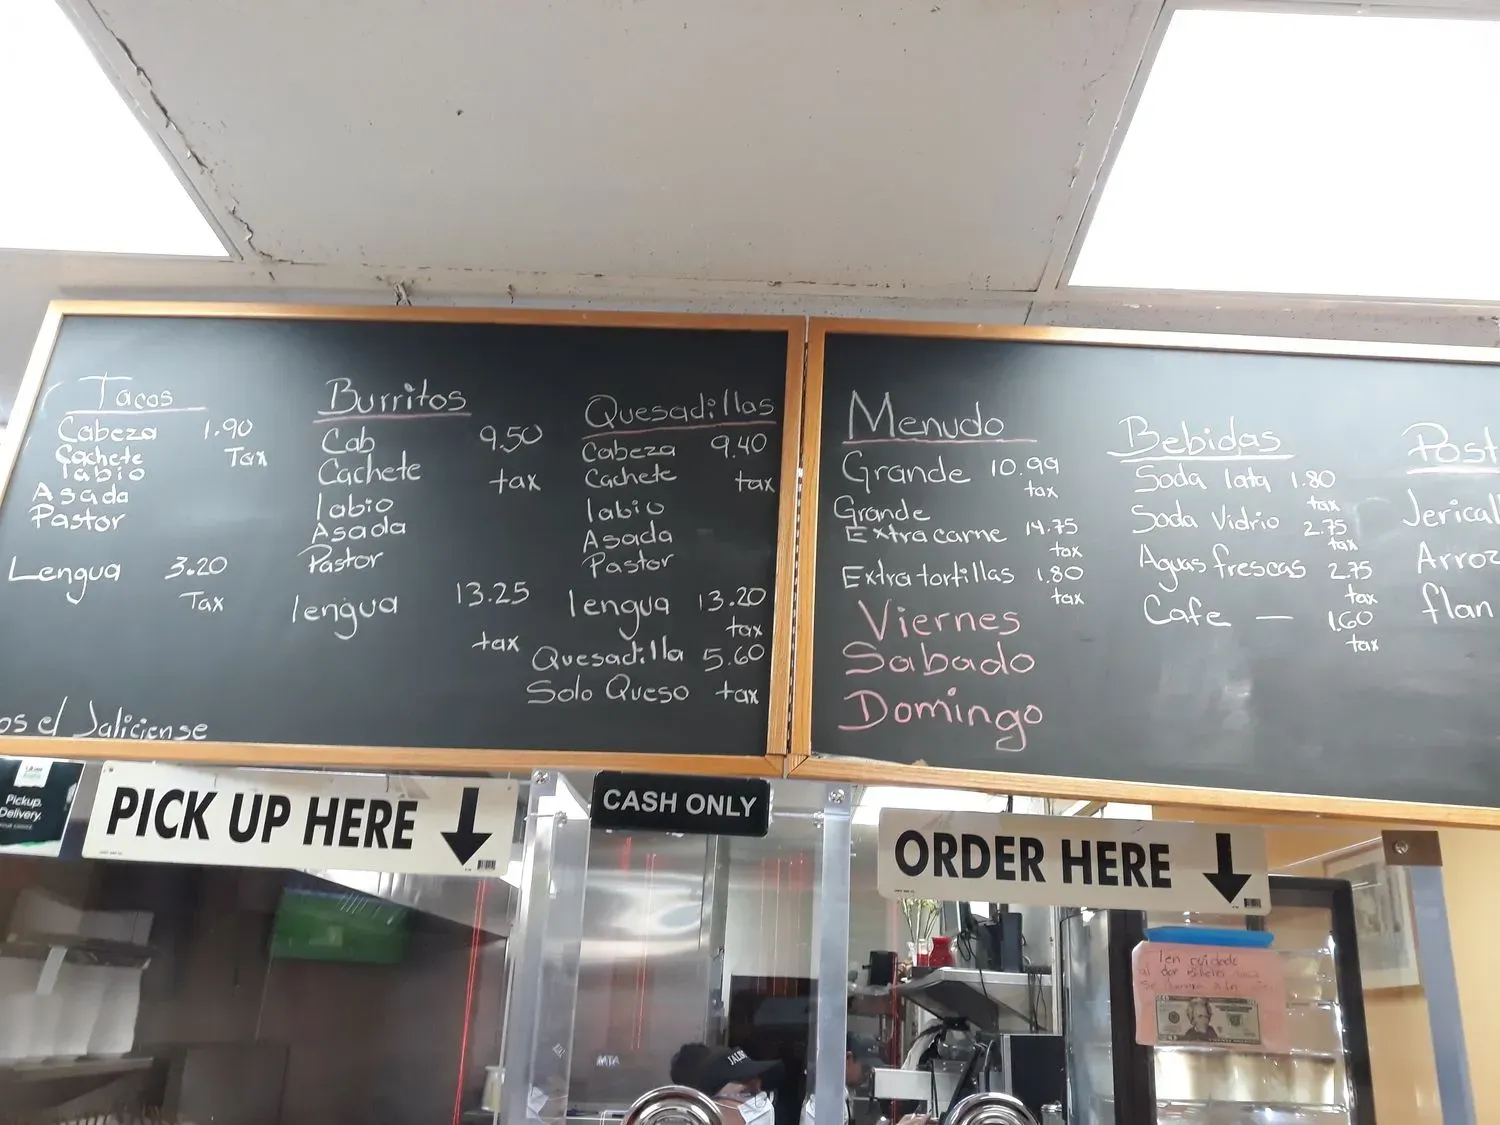 Tacos
Cabeza 1.90
Cachete Tax
labio
Asada
Pastor
Lengua 3.20
Tax
os el Jaliciense
Burritos
Cab 9.50
Cachete tax
labio
Asada
Pastor
lengua 13.25
tax
Quesadillas
Cabeza 9.40
Cachete tax
labio
Asada
Pastor
lengua 13.20
tax
Quesadilla 5.60
Solo Queso tax
Menudo
Grande 10.99
tax
Grande
Extra carne 14.75
tax
Extra tortillas 1.80
tax
Viernes
Sabado
Domingo
Bebidas
Soda lata 1.80
tax
Soda Vidrio 2.75
tax
Aguas frescas 2.75
tax
Cafe — 1.60
tax
Post
Jericall
Arroz
flan
Pickup.
Delivery.
PICK UP HERE
CASH ONLY
ORDER HERE
Ten cuidado
al dar
MTA